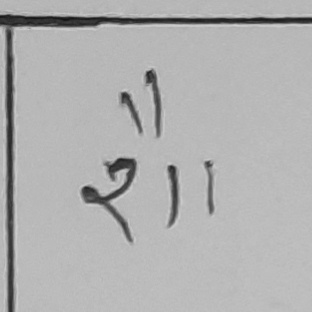 "
२।।